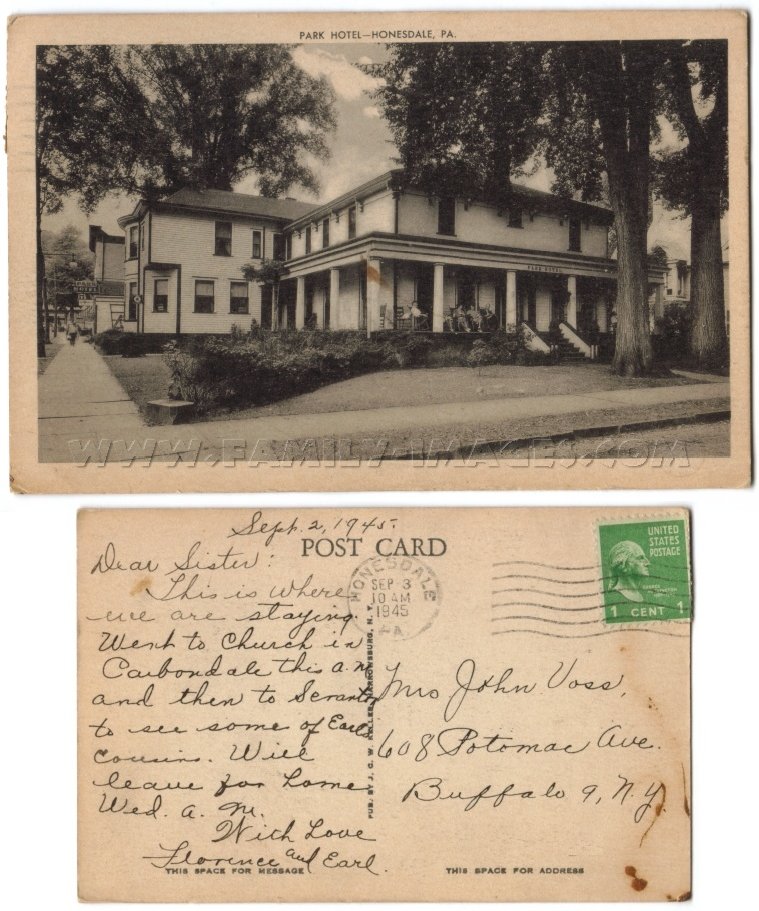 PARK HOTEL—HONESDALE, PA.
PARK HOTEL
PARK
HOTEL
WWW.FAMILY-IMAGES.COM
Sept. 2, 1945.
POST CARD
Dear Sister:
This is where
we are staying.
Went to Church in
Carbondale this a.m.
and then to Scranton
to see some of Earl's
cousins. Will
leave for home
Wed. a. m.
With Love
Florence and Earl.
THIS SPACE FOR MESSAGE
PUB. BY J. G. W. KELLER, NARROWSBURG, N. Y.
HONESDALE
SEP 3
10 AM
1945
PA.
UNITED
STATES
POSTAGE
1 CENT 1
Mrs John Voss,
608 Potomac Ave.
Buffalo 9, N.Y.
THIS SPACE FOR ADDRESS